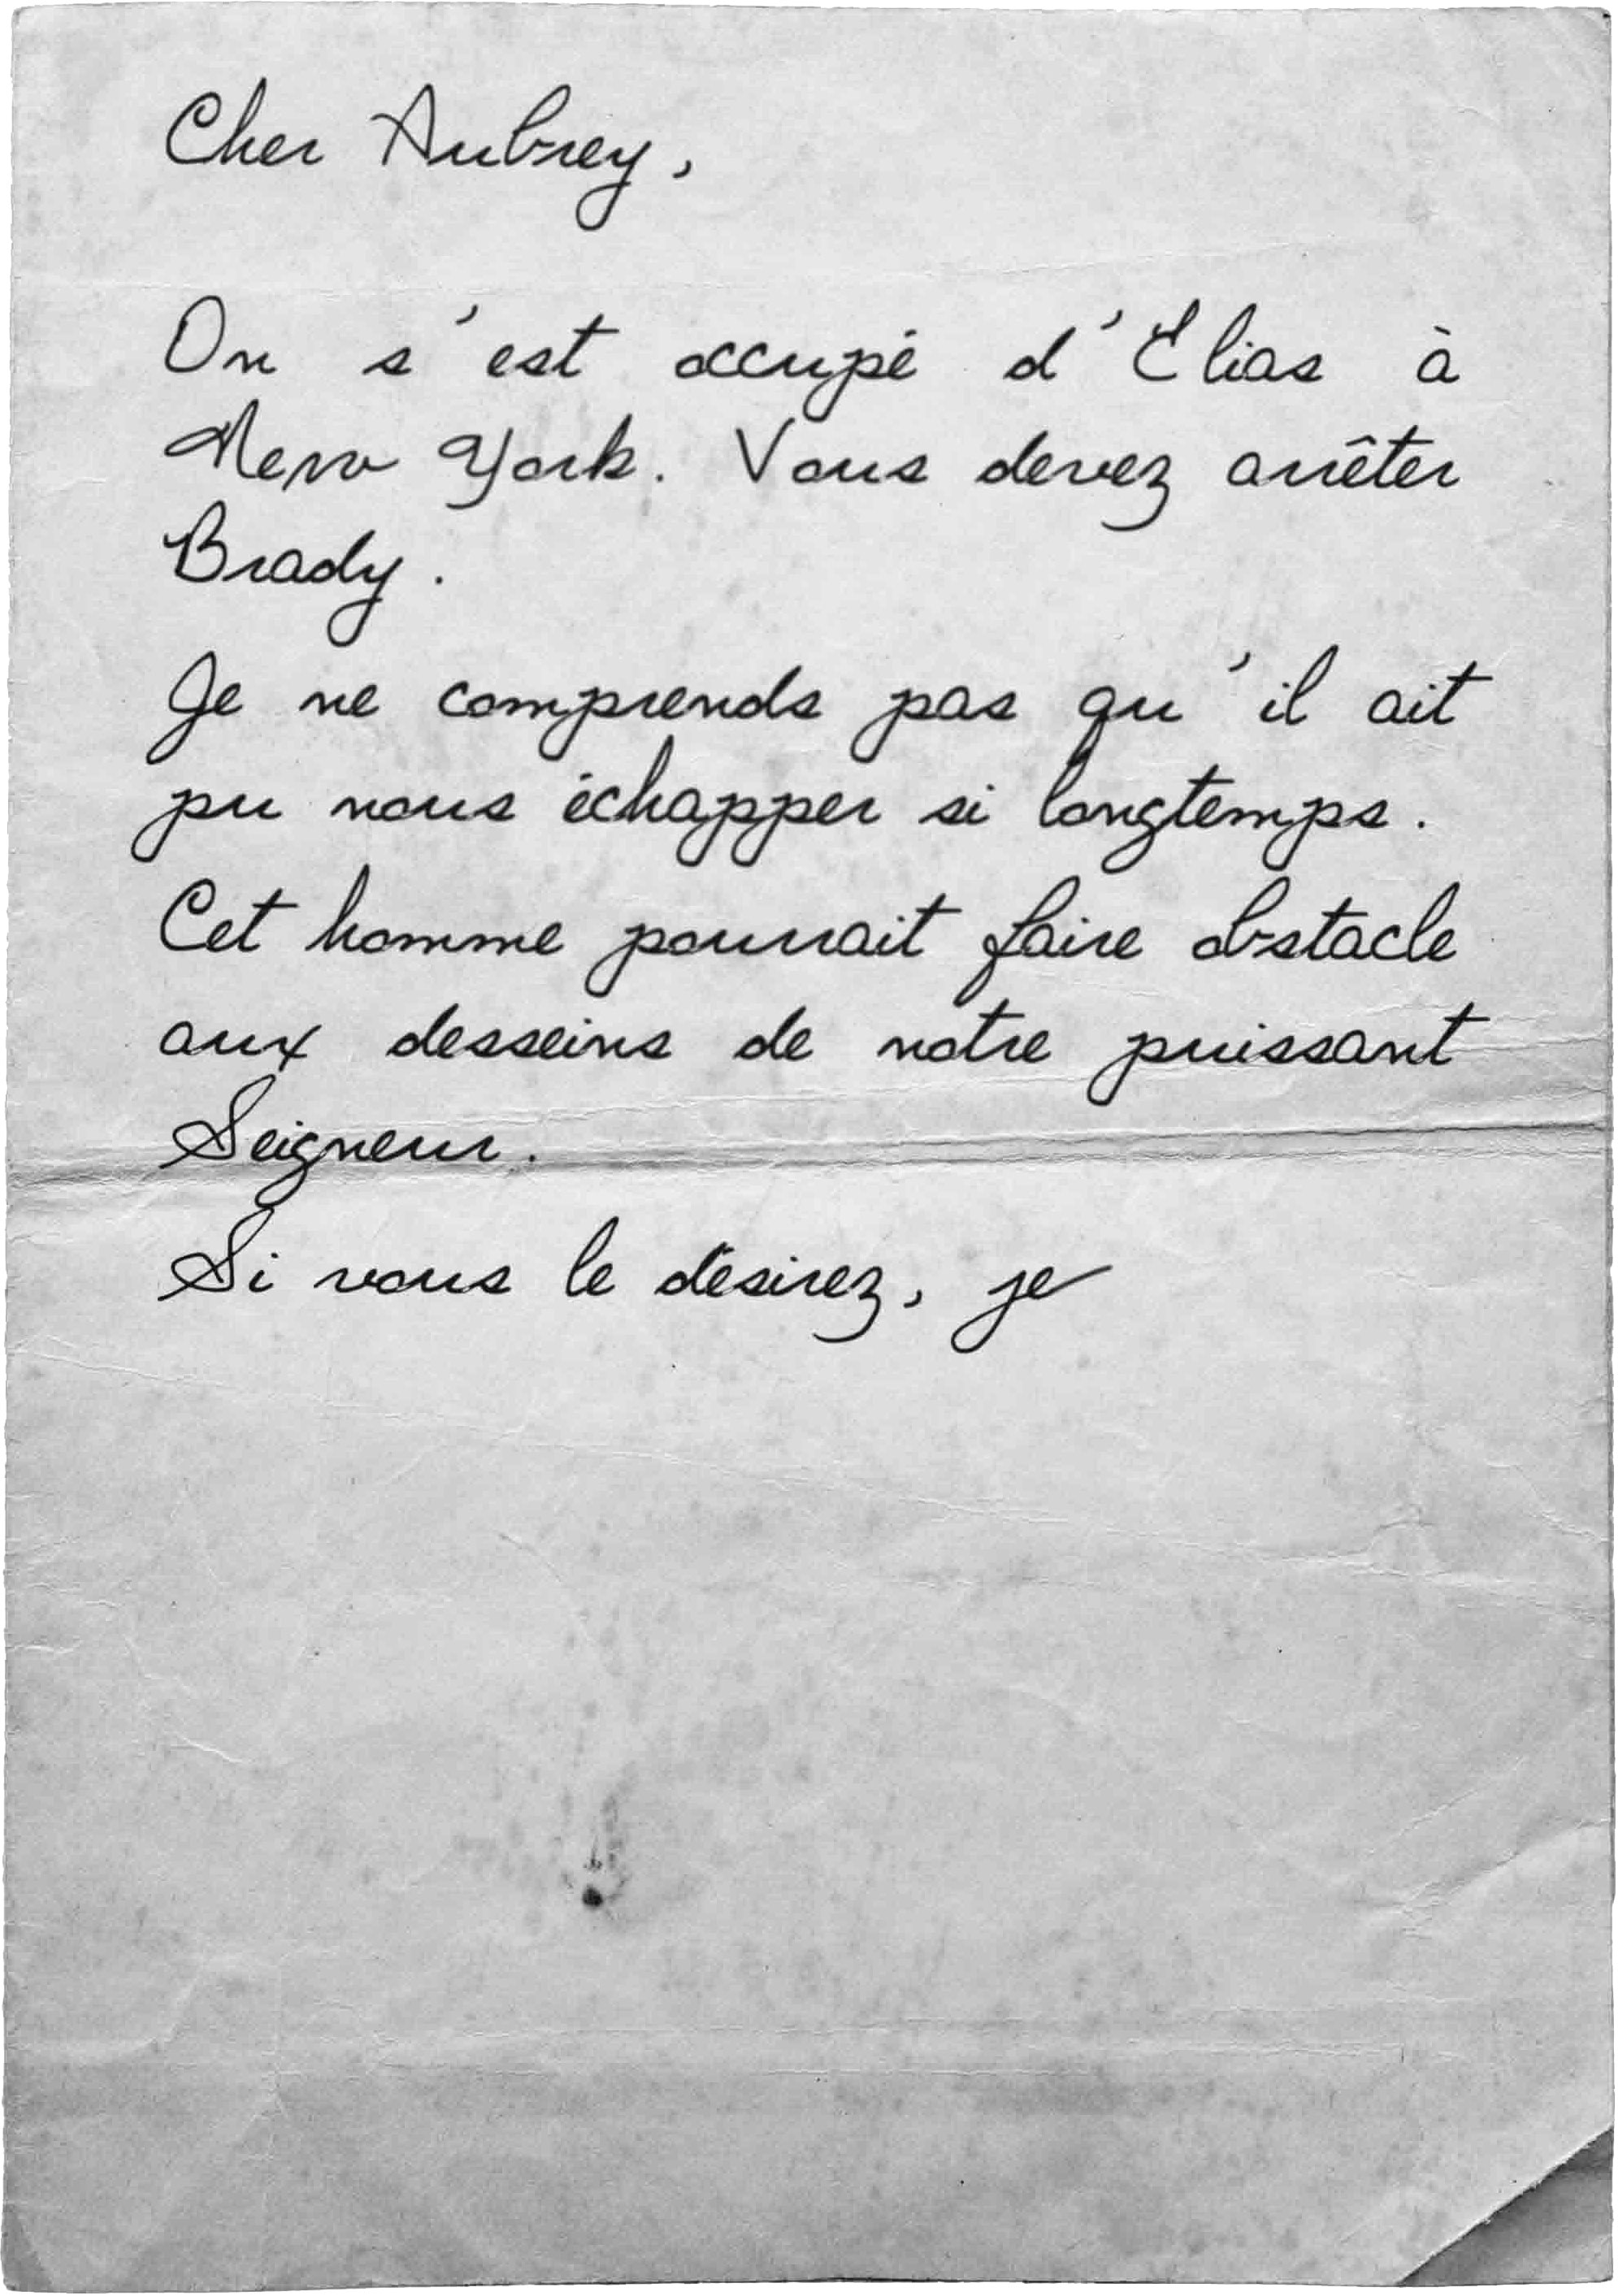 Cher Aubrey,
On s'est occupé d'Elias à
New York. Vous devez arrêter
Brady.
Je ne comprends pas qu'il ait
pu nous échapper si longtemps.
Cet homme pourrait faire obstacle
aux desseins de notre puissant
Seigneur.
Si vous le désirez, je